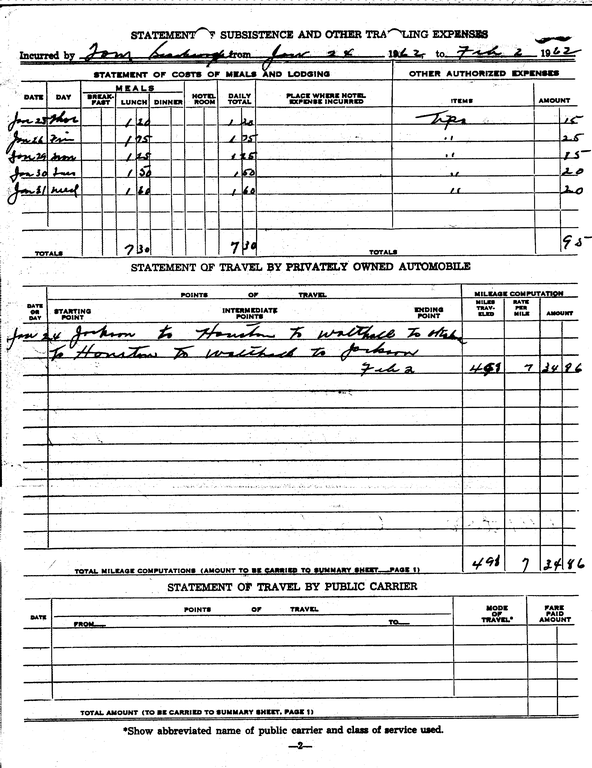 STATEMENT OF SUBSISTENCE AND OTHER TRAVELING EXPENSES
Incurred by Tom from Jan 24 1962 to Feb 2 1962
STATEMENT OF COSTS OF MEALS AND LODGING OTHER AUTHORIZED EXPENSES
DATE DAY MEALS BREAK-FAST LUNCH DINNER HOTEL ROOM DAILY TOTAL PLACE WHERE HOTEL EXPENSE INCURRED ITEMS AMOUNT
Jan 25 Thur 1 20 1 20 Tips 15
Jan 26 Fri 1 75 1 75 " 25
Jan 29 Mon 1 25 1 25 " 15
Jan 30 Tues 1 50 1 50 " 20
Jan 31 Wed 1 60 1 60 " 20
TOTALS 7 30 7 30 TOTALS 95
STATEMENT OF TRAVEL BY PRIVATELY OWNED AUTOMOBILE
DATE OR DAY POINTS OF TRAVEL MILEAGE COMPUTATION
STARTING POINT INTERMEDIATE POINTS ENDING POINT MILES TRAV-ELED RATE PER MILE AMOUNT
Jan 24 Jackson to Houston to Walthall to
to Houston to Walthall to Jackson
Feb 2 498 7 34 86
TOTAL MILEAGE COMPUTATIONS (AMOUNT TO BE CARRIED TO SUMMARY SHEET PAGE 1) 498 7 34 86
STATEMENT OF TRAVEL BY PUBLIC CARRIER
DATE POINTS OF TRAVEL MODE OF TRAVEL* FARE PAID AMOUNT
FROM TO
TOTAL AMOUNT (TO BE CARRIED TO SUMMARY SHEET, PAGE 1)
*Show abbreviated name of public carrier and class of service used.
—2—